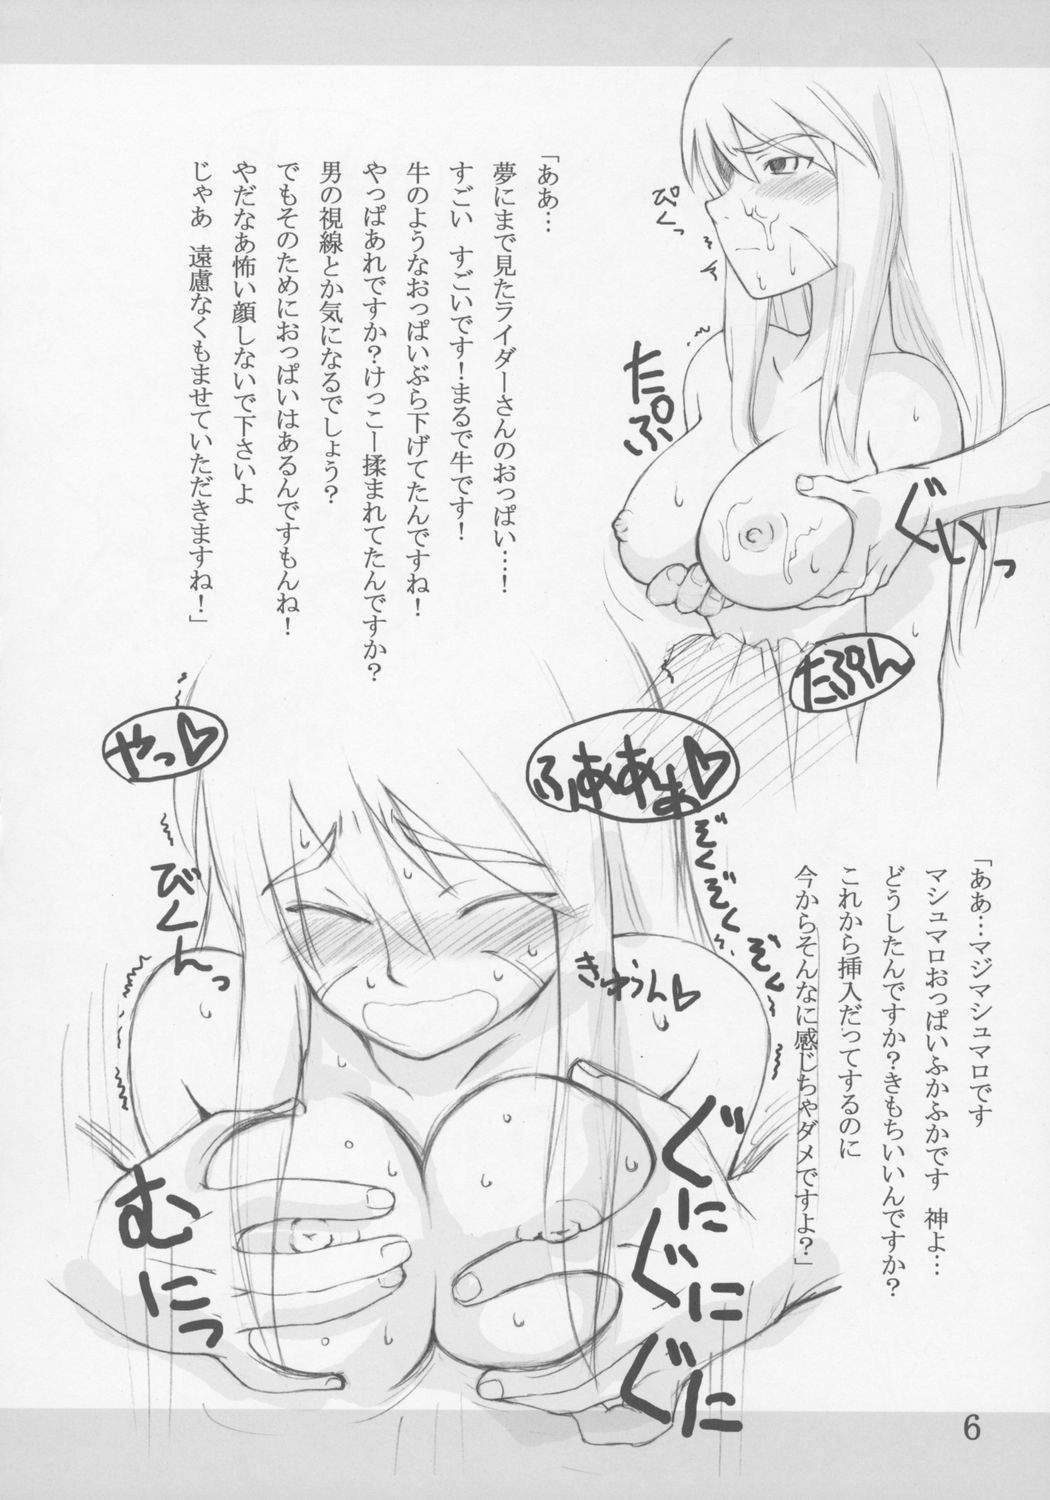 「ああ…
夢にまで見たライダーさんのおっぱい…！
すごい すごいです！まるで牛です！
牛のようなおっぱいぶら下げてたんですね！
やっぱあれですか？けっこー揉まれてたんですか？
男の視線とか気になるでしょう？
でもそのためにおっぱいはあるんですもんね！
やだなあ怖い顔しないで下さいよ
じゃあ 遠慮なくもませていただきますね！」
ぴくっ
たぷ
ぐいっ
たぷん
やっ♡
ふぁあぁぁ♡
ぞくぞくぞくぞく
びくんっ
きゅうん♡
「ああ…マジマシュマロです
マシュマロおっぱいふかふかです 神よ…
どうしたんですか？きもちいいんですか？
これから挿入だってするのに
今からそんなに感じちゃダメですよ？」
むにっ
ぐにぐにぐに
6